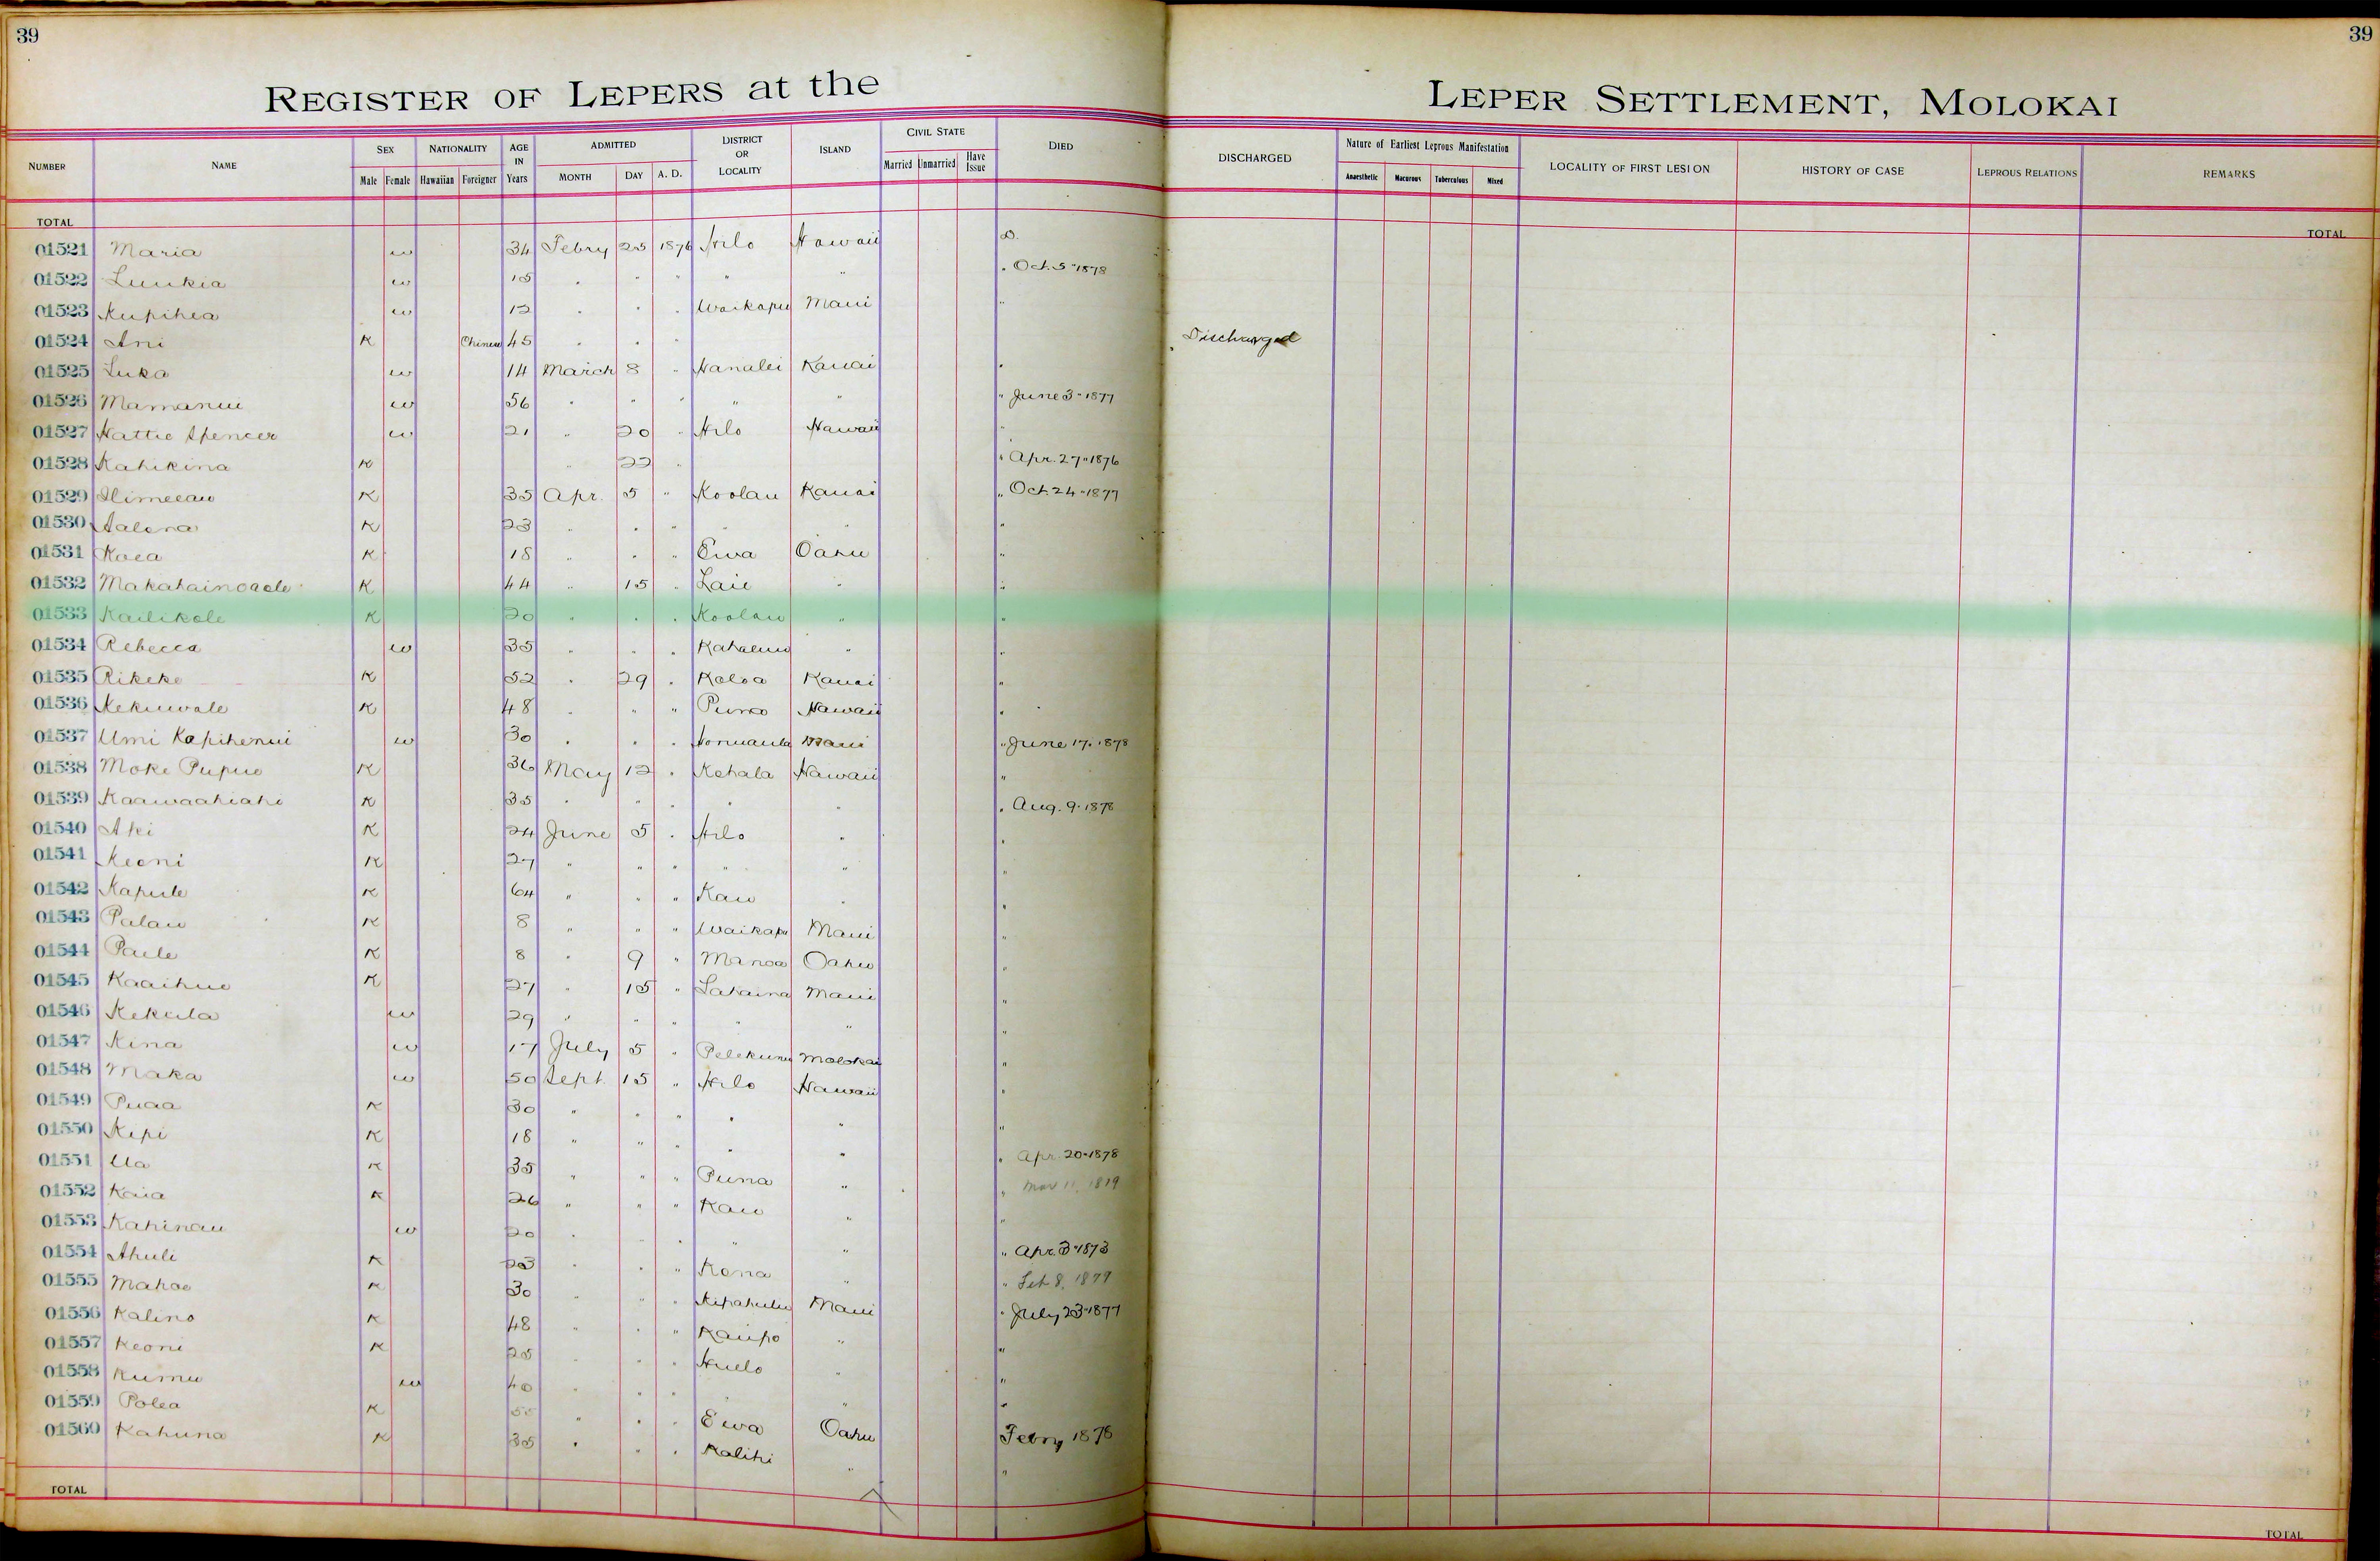 39
39
REGISTER OF LEPERS at the LEPER SETTLEMENT, MOLOKAI
NUMBER NAME SEX Male Female NATIONALITY Hawaiian Foreigner AGE IN Years ADMITTED MONTH DAY A. D. DISTRICT OR LOCALITY ISLAND CIVIL STATE Married Unmarried Have Issue DIED DISCHARGED Nature of Earliest Leprous Manifestation Anaesthetic Macurous Tuberculous Mixed LOCALITY OF FIRST LESION HISTORY OF CASE LEPROUS RELATIONS REMARKS
TOTAL TOTAL
01521 Maria w 34 Febry 25 1876 Hilo Hawaii D.
01522 Luukia w 15 " " " " " " Oct. 5 - 1878
01523 Kupihea w 12 " " " Waikapu Maui "
01524 Ani K Chinese 45 " " " Discharged
01525 Luka w 14 March 8 " Hanalei Kauai "
01526 Mamanui w 56 " " " " " " June 3 - 1877
01527 Hattie Spencer w 21 " 20 " Hilo Hawaii "
01528 Kahikina K " 22 " " Apr. 27 - 1876
01529 K 35 Apr. 5 " Koolau Kauai " Oct. 24 - 1877
01530 Aalona K 23 " " " " " "
01531 Koea K 18 " " " Ewa Oahu "
01532 Makahainoaole K 44 " 15 " Laie " "
01533 Kailikole K 20 " " " Koolau " "
01534 Rebecca w 35 " " " Kahaluu " "
01535 Rikeke K 52 " 29 " Koloa Kauai "
01536 Kekuwale K 48 " " " Puna Hawaii "
01537 Umi Kapihenui w 30 " " " Honuaula Maui " June 17. 1878
01538 Moke Pupue K 36 May 12 " Kohala Hawaii "
01539 Kaawaahiahi K 35 " " " " " " Aug. 9 - 1878
01540 Aki K 24 June 5 " Hilo " "
01541 Keoni K 27 " " " " " "
01542 Kapule K 64 " " " Kau " "
01543 Palau K 8 " " " Waikapu Maui "
01544 Paele K 8 " 9 " Manoa Oahu "
01545 Kaaihue K 27 " 15 " Lahaina Maui "
01546 Kekula w 29 " " " " " "
01547 Kina w 17 July 5 " Pelekunu Molokai "
01548 Maka w 50 Sept. 15 " Hilo Hawaii "
01549 Puaa K 30 " " " " " "
01550 Kepi K 18 " " " " " "
01551 Ua K 35 " " " Puna " " Apr. 20 - 1878
01552 Kaia K 26 " " " Kau " " Mar 11. 1879
01553 Kahinau w 20 " " " " " "
01554 Ahuli K 23 " " " Kona " " Apr. 3 - 1873
01555 Mahoe K 30 " " " Kipahulu Maui " Feb 8. 1879
01556 Kalino K 48 " " " Kaupo " " July 23 - 1877
01557 Keoni K 25 " " " Huelo " "
01558 Kumu w 40 " " " " "
01559 Polea K 55 " " " Ewa Oahu "
01560 Kahuna K 35 " " " Kalihi " Febry 1878
TOTAL TOTAL